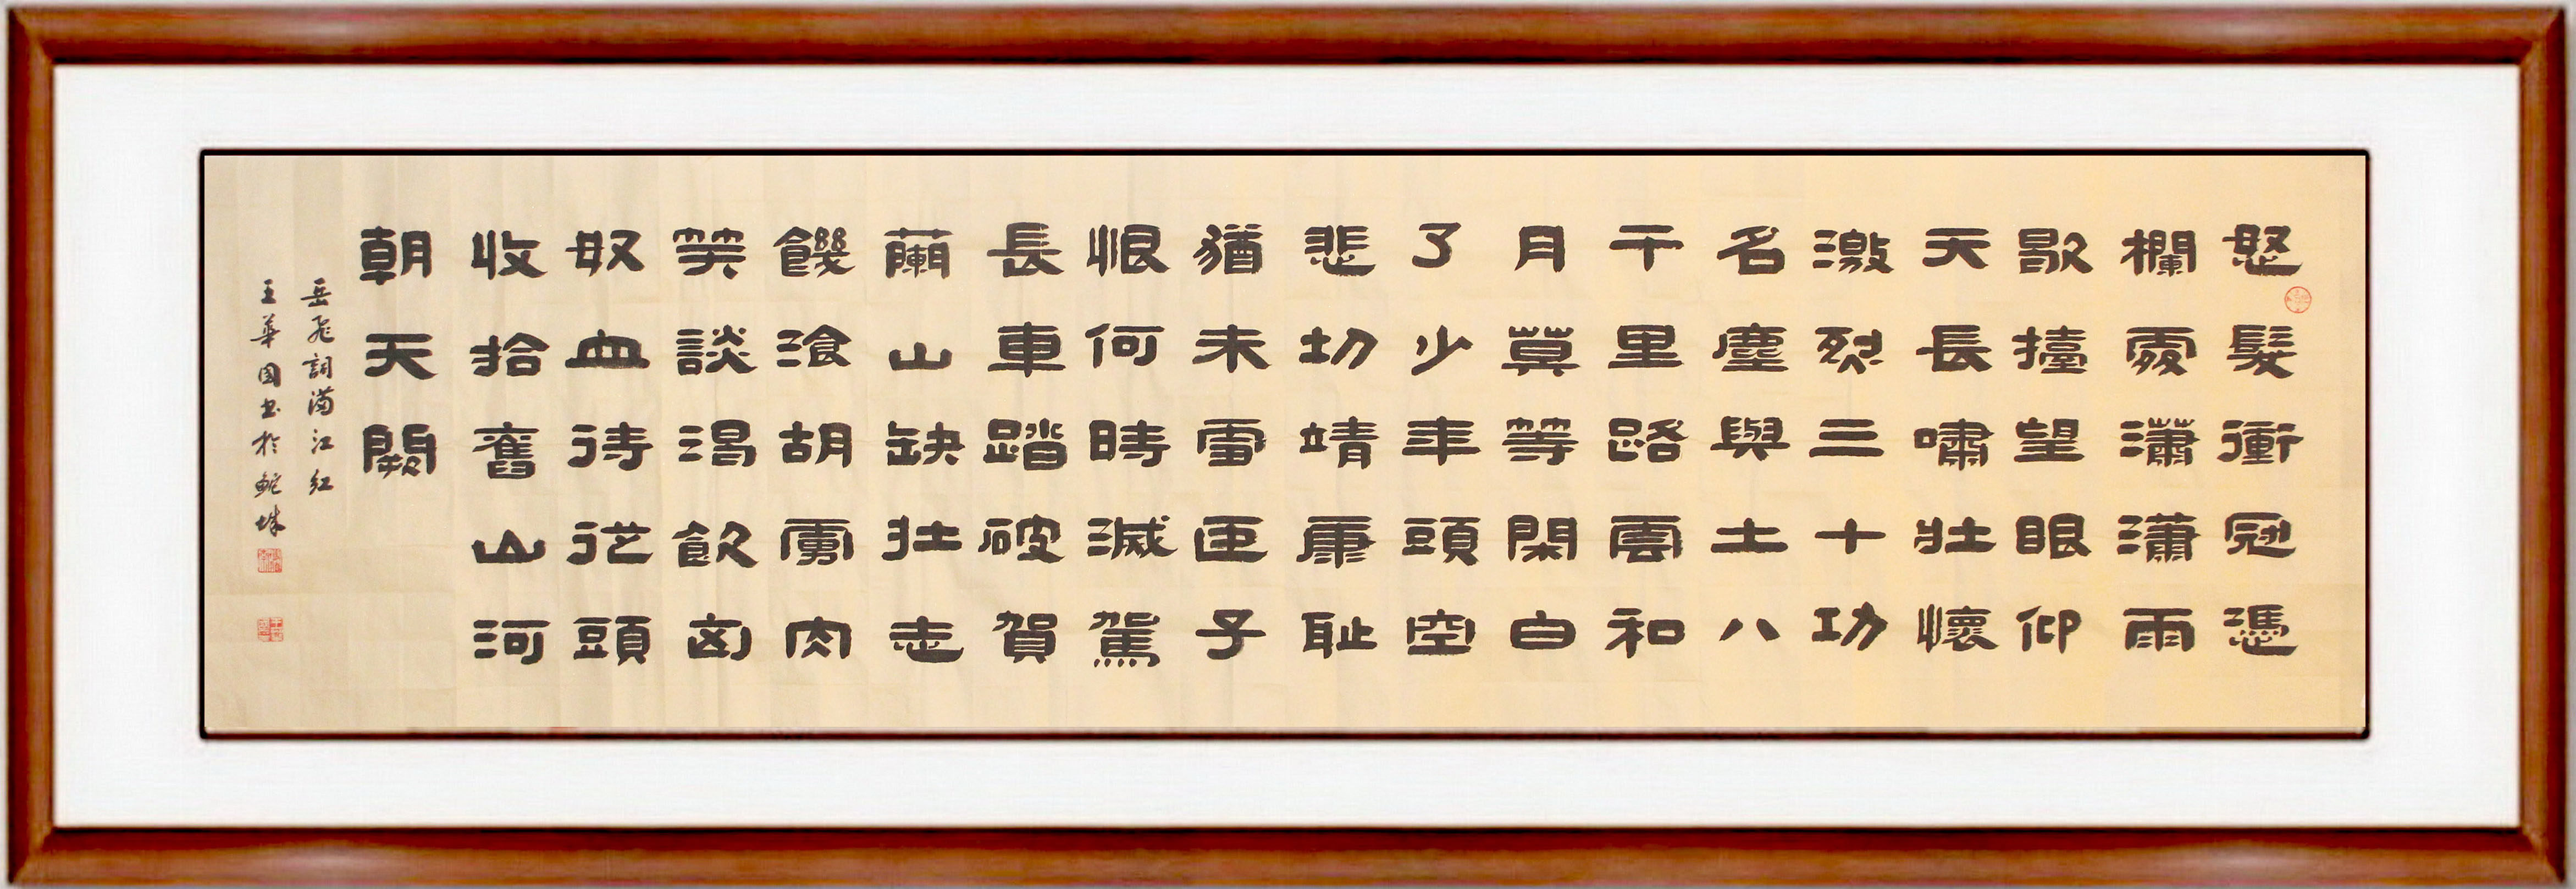 怒髮衝冠憑
欄處瀟瀟雨
歇擡望眼仰
天長嘯壯懷
激烈三十功
名塵與土八
千里路雲和
月莫等閑白
了少年頭空
悲切靖康耻
猶未雪臣子
恨何時滅駕
長車踏破賀
蘭山缺壯志
饑湌胡虜肉
笑談渴飲匈
奴血待從頭
收拾舊山河
朝天闕
岳飛詞滿江紅
王華国书於鮀城